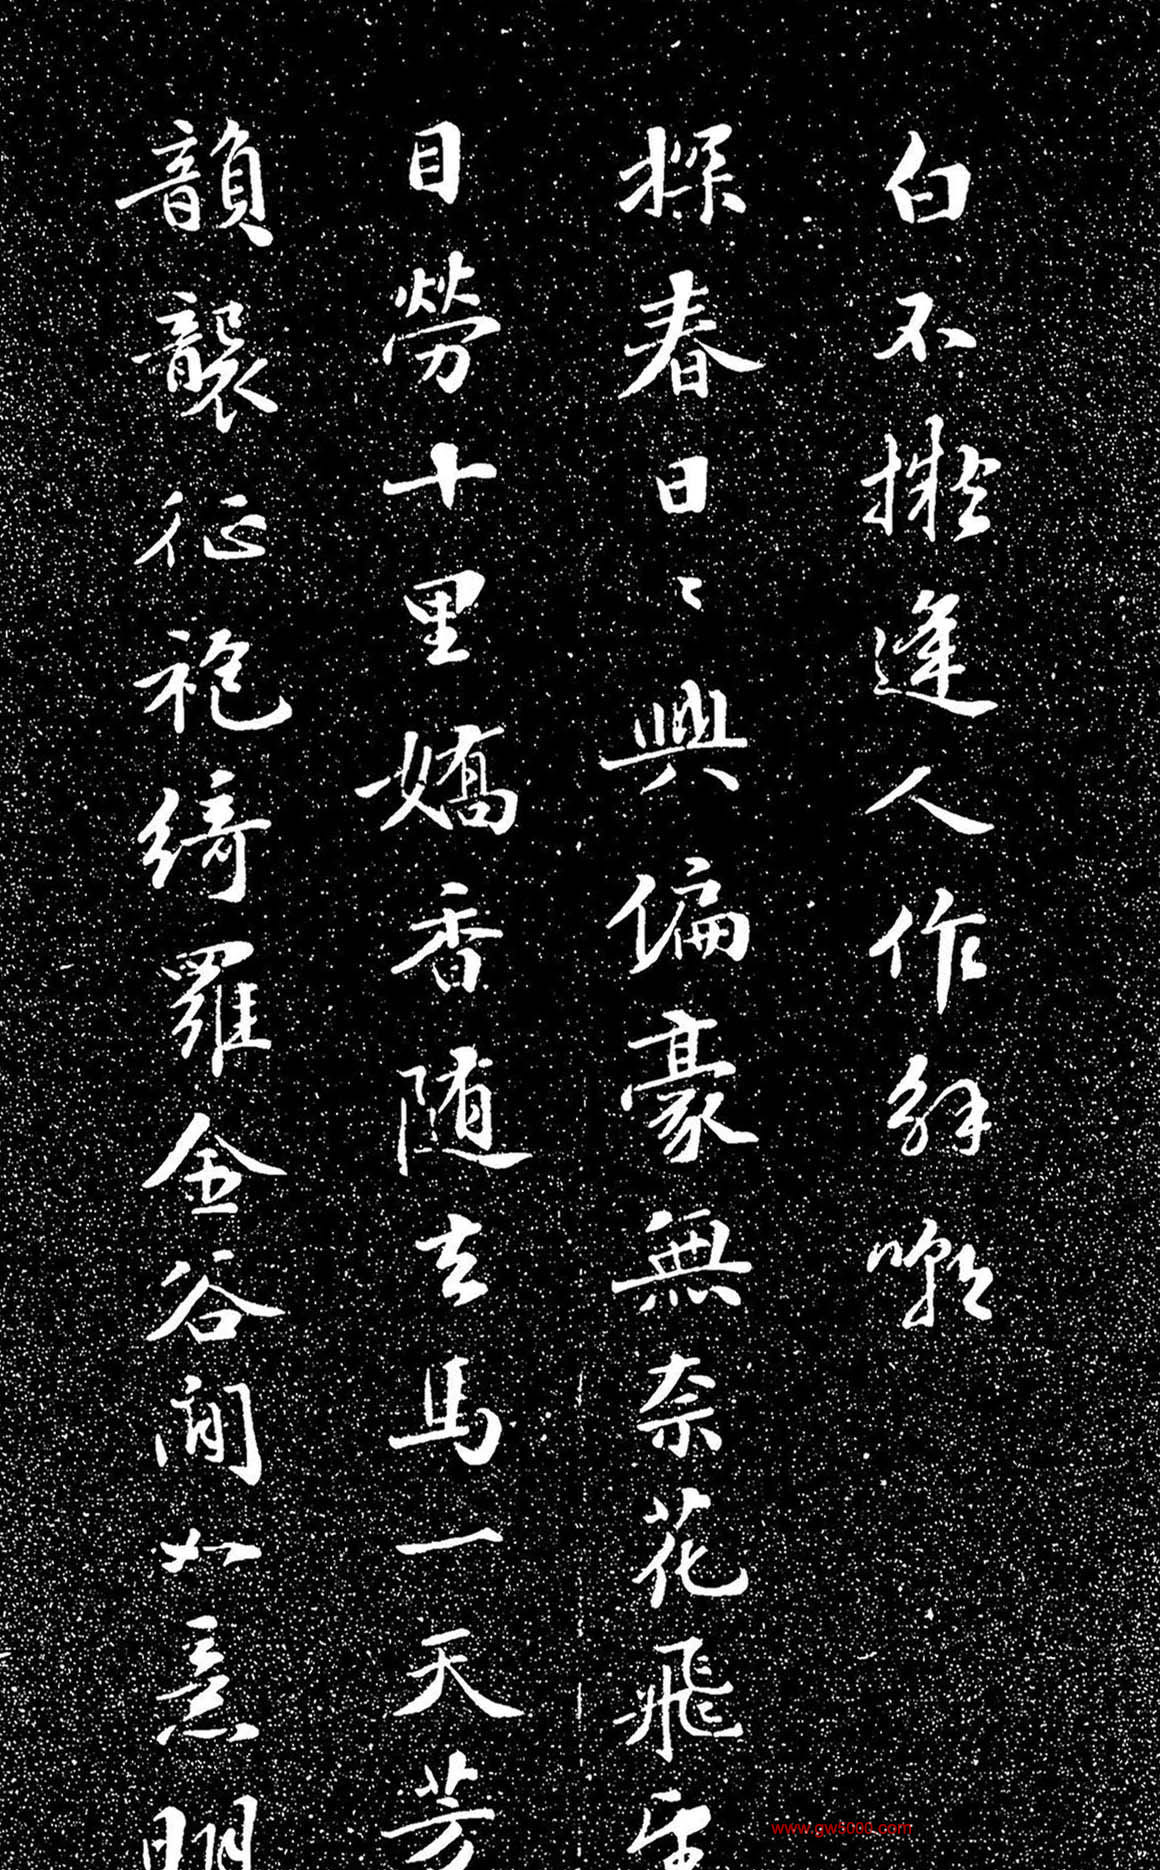 白不擬逢人作解嘲
探春日〻興偏豪無奈花飛
目勞十里嬌香随去馬一天芳
韻襲征袍綺羅金谷閒如意明
www.gw5000.com